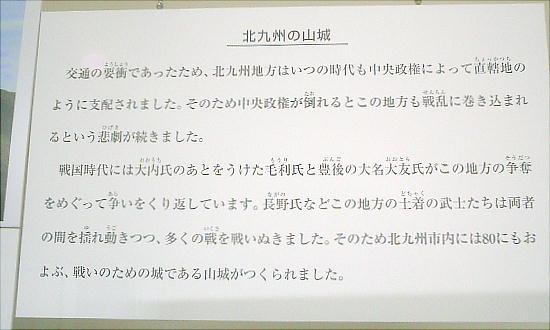 北九州の山城
交通の要衝であったため、北九州地方はいつの時代も中央政権によって直轄地の
ように支配されました。そのため中央政権が倒れるとこの地方も戦乱に巻き込まれ
るという悲劇が続きました。
戦国時代には大内氏のあとをうけた毛利氏と豊後の大名大友氏がこの地方の争奪
をめぐって争いをくり返しています。長野氏などこの地方の土着の武士たちは両者
の間を揺れ動きつつ、多くの戦を戦いぬきました。そのため北九州市内には80にもお
よぶ、戦いのための城である山城がつくられました。